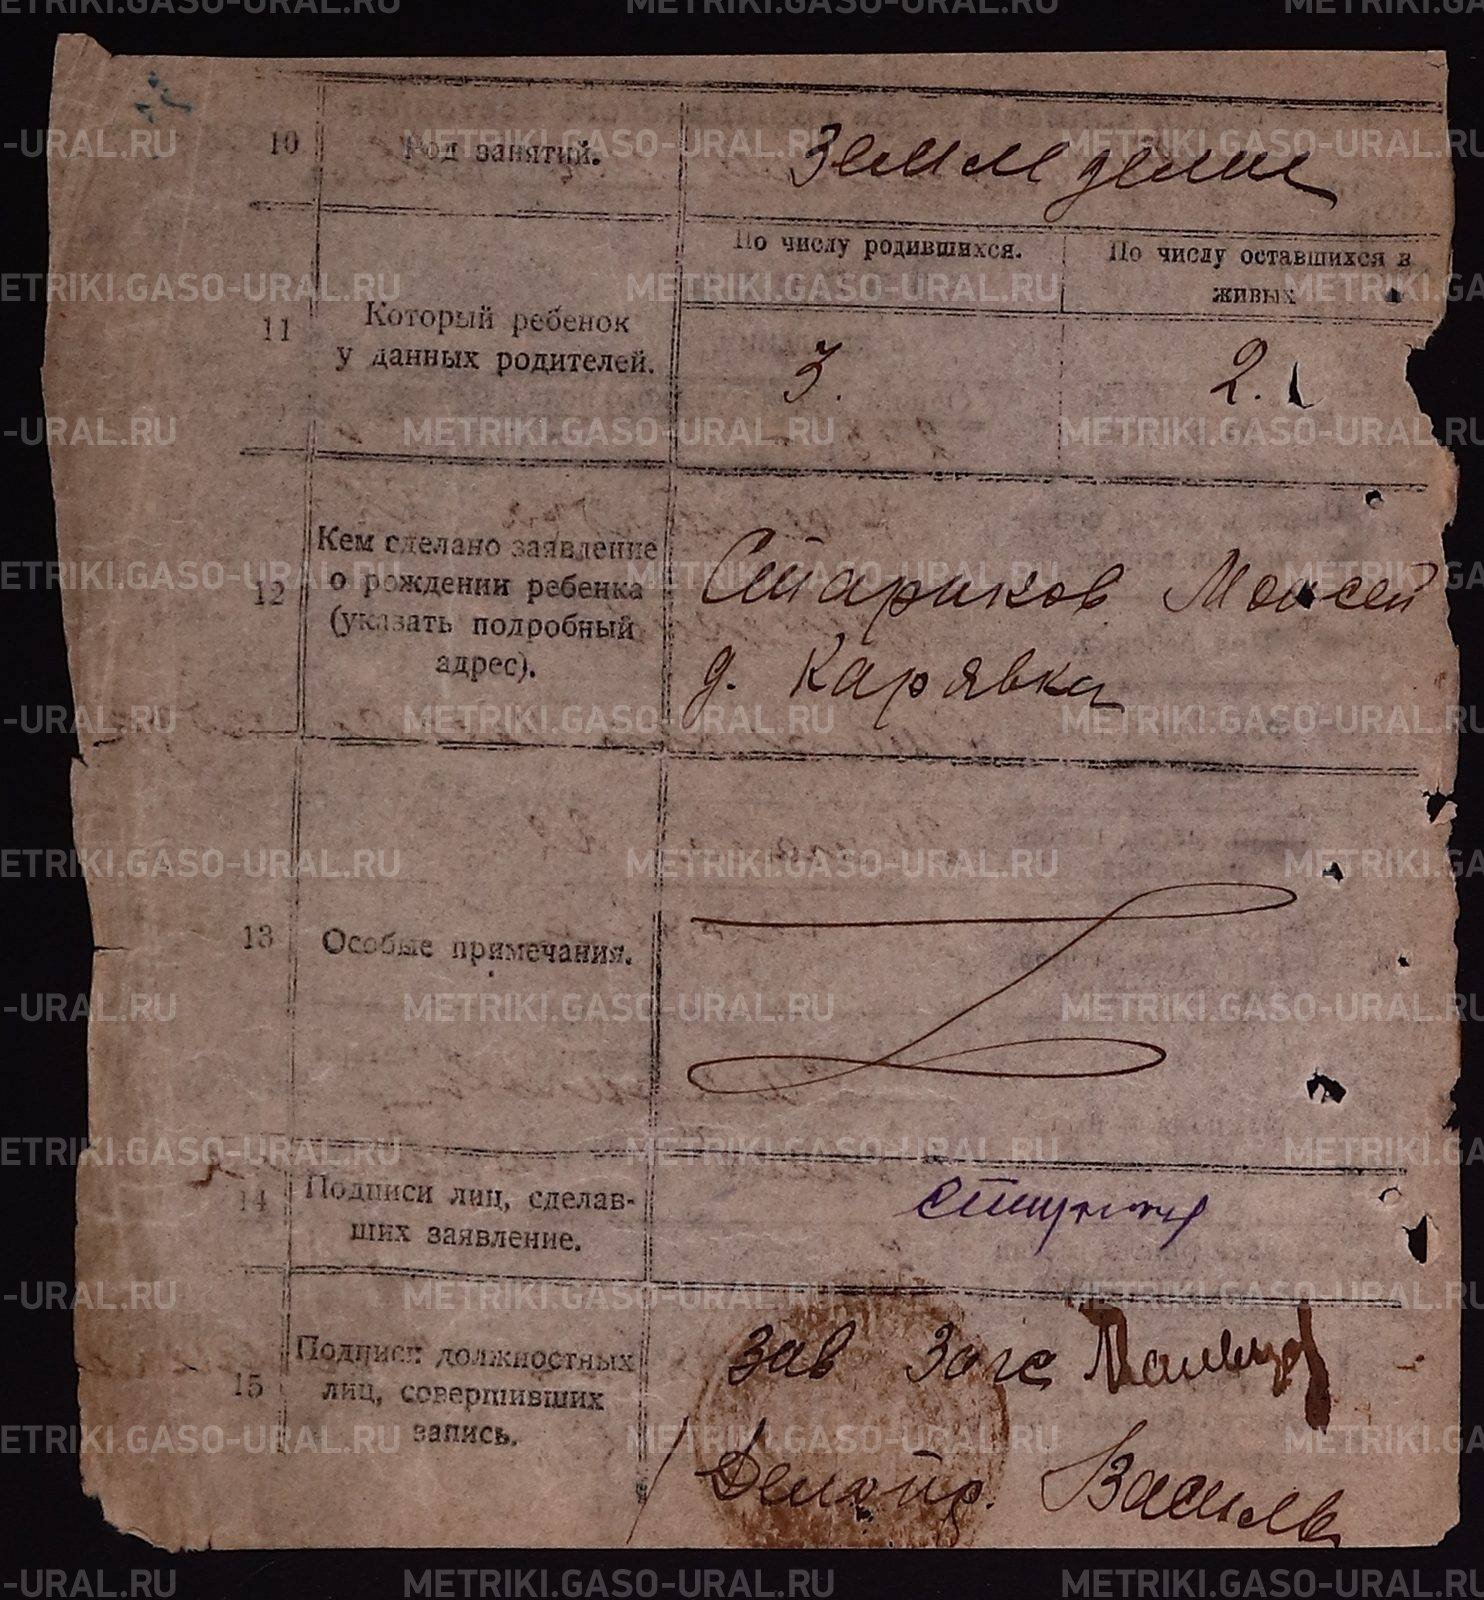 10 Род занятий. Землмделие
По числу родившихся. По числу оставшихся в
живых
11 Который ребенок
у данных родителей.
3. 2.
12 Кем сделано заявление
о рождении ребенка
(указать подробный
адрес).
Стариков Моисей
д. Карявка
13 Особые примечания.
14 Подписи лиц, сделав-
ших заявление.
15 Подписи должностных
лиц, совершивших
запись.
Зав Загс
Делопр.
METRIKI.GASO-URAL.RU